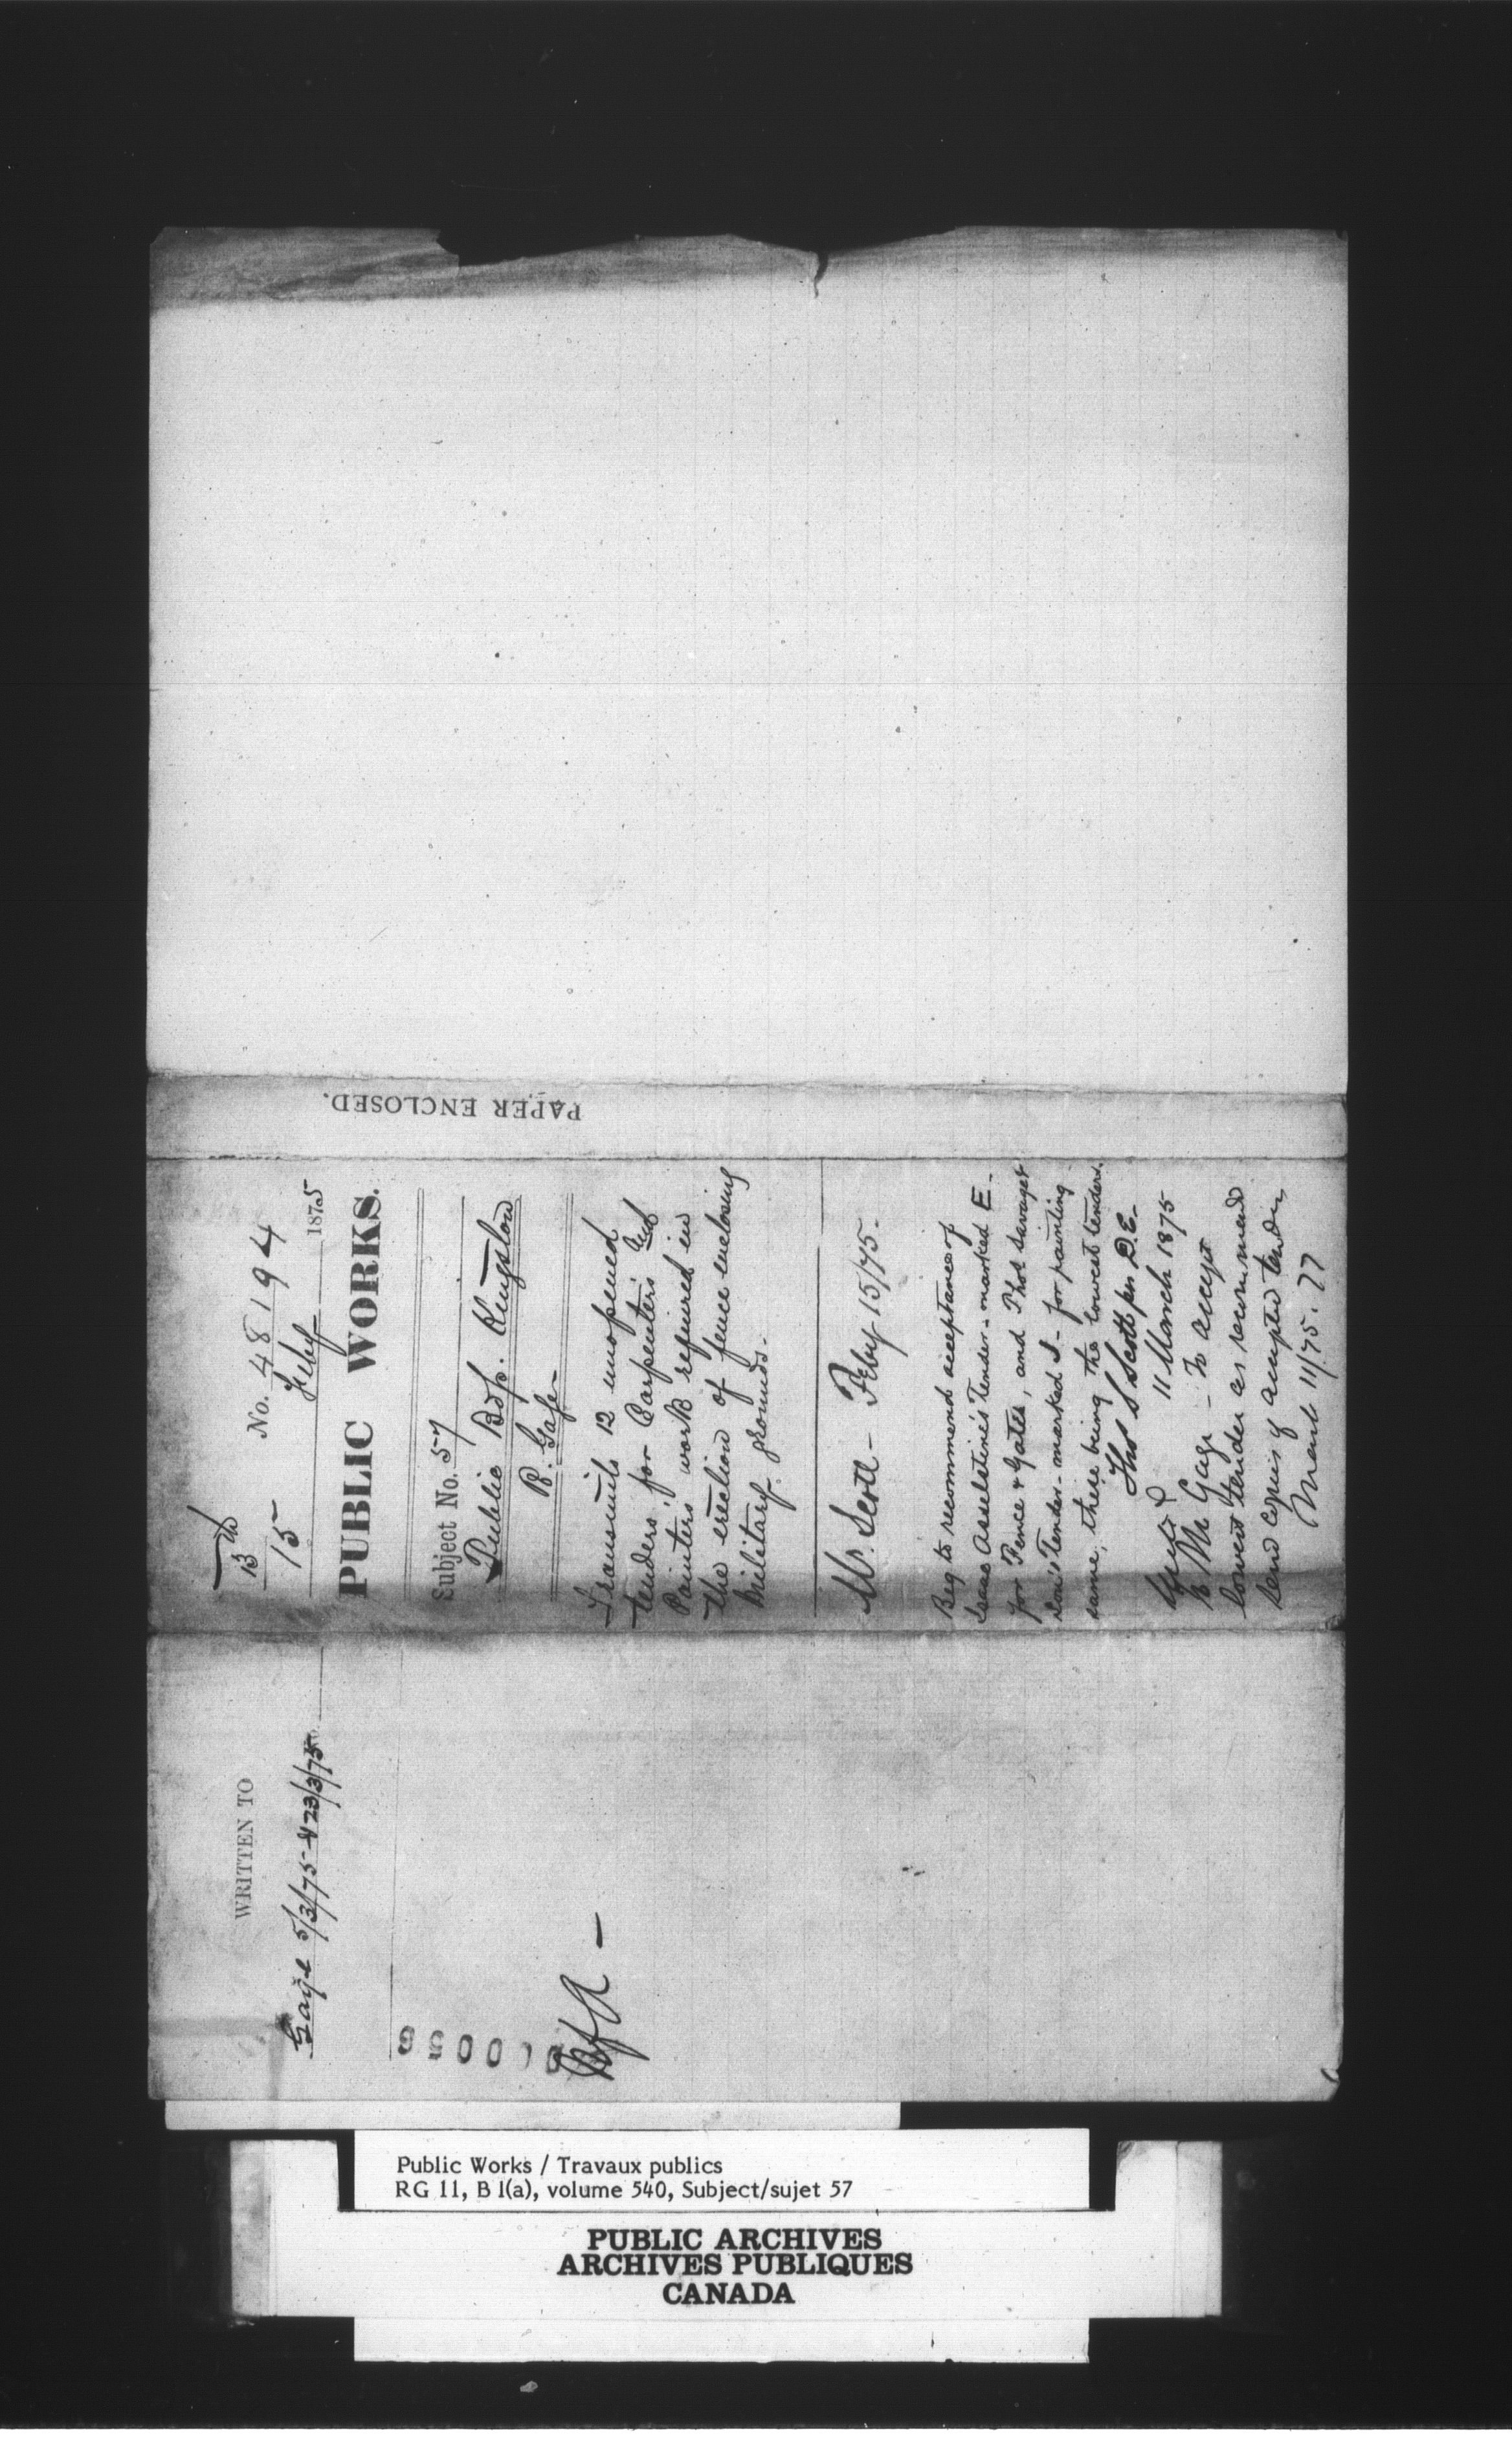 13th
15
No. 48194
Feby 1875
PUBLIC WORKS.
Subject No. 57
Public Bds. Kingston
R. Gage
Transmits 12 unopened
tenders for Carpenters and
Painters work required in
the erection of fence enclosing
Military grounds.
Mr. Scott - Feby 15/75.
Beg to recommend acceptance of
Isaac Asselstine's Tender - marked E -
for Fence & Gates, and Thos Savage &
Son's Tender - marked I - for painting
same, these being the lowest tenders.
Thos S Scott per D.E.
11 March 1875
to Mr Gage - To accept
lowest tender as recommend
send copies of accepted tender
March 11/75.
PAPER ENCLOSED.
WRITTEN TO
Gage 5/3/75 - & 23/3/75
Public Works / Travaux publics
RG 11, B 1(a), volume 540, Subject/sujet 57
PUBLIC ARCHIVES
ARCHIVES PUBLIQUES
CANADA